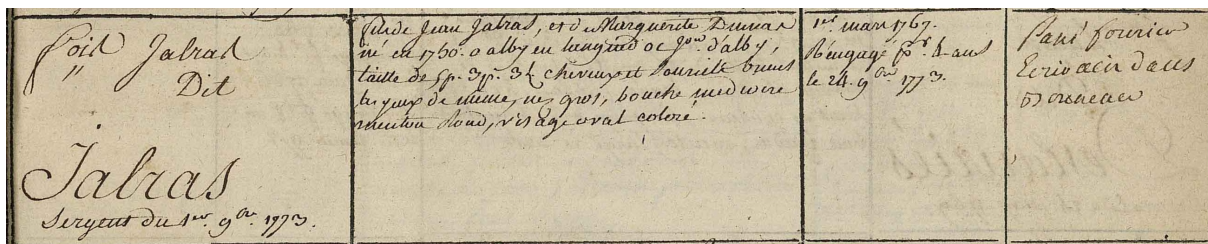 Jalras
Dit
Jalras
Sergent du 1er. 9bre. 1773.
fils de Jean Jalras, et de Marguerite
né en 1750. a alby en languedoc Jon. d'alby,
taille de 5p. 3p. 3l cheveux et Sourcils bruns
les yeux de meme, nez gros, bouche mediocre
menton Rond, visage oval coloré.
1er. mars 1767.
Rengagé pr. 4 ans
le 24. 9bre. 1773.
Passé fourier
Ecrivain dans